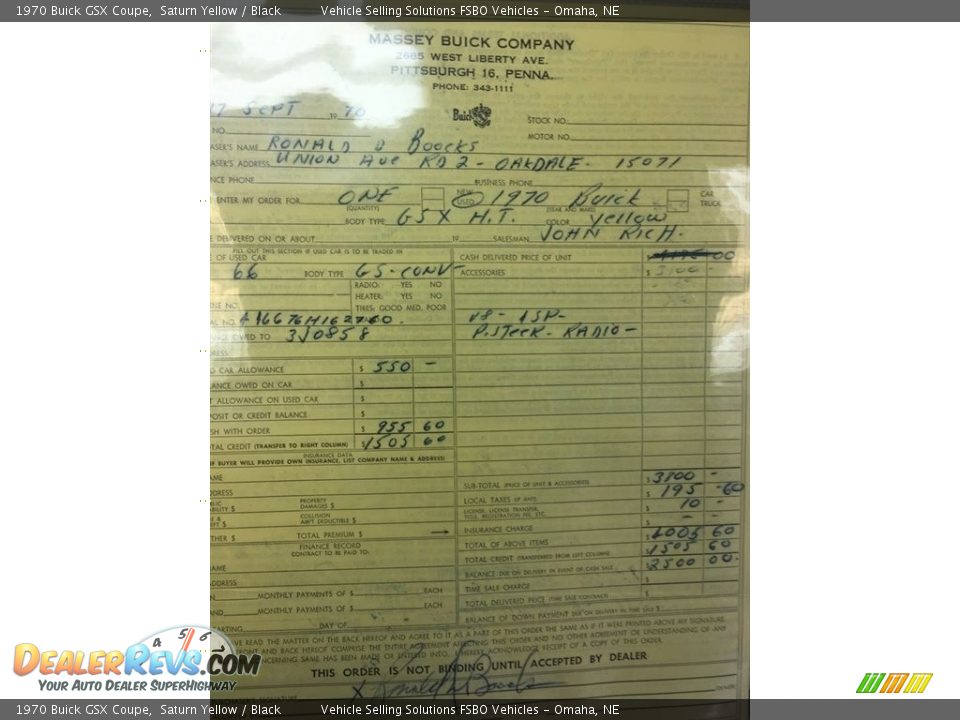 1970 Buick GSX Coupe, Saturn Yellow / Black Vehicle Selling Solutions FSBO Vehicles - Omaha, NE
MASSEY BUICK COMPANY
2685 WEST LIBERTY AVE.
PITTSBURGH 16, PENNA.
PHONE: 343-1111
17 SEPT 19 70
Buick
STOCK NO.
NO. MOTOR NO.
ASER'S NAME RONALD D Boocks
ASER'S ADDRESS UNION AVE RD 2 - OAKDALE - 15071
NCE PHONE BUSINESS PHONE
ENTER MY ORDER FOR ONE (QUANTITY) NEW USED 1970 Buick (YEAR AND MAKE) CAR TRUCK
BODY TYPE GSX H.T. COLOR Yellow
E DELIVERED ON OR ABOUT 19 SALESMAN JOHN RICH.
FILL OUT THIS SECTION IF USED CAR IS TO BE TRADED IN
E OF USED CAR CASH DELIVERED PRICE OF UNIT 00
66 BODY TYPE GS-CONV ACCESSORIES $ 3100 -
RADIO: YES NO
HEATER: YES NO
NE NO. TIRES: GOOD MED. POOR
AL NO. 446676H162760. V8 - 4SP-
OWED TO 3J0858 P.STEER - RADIO -
RESS
D CAR ALLOWANCE $ 550 -
ANCE OWED ON CAR $
T ALLOWANCE ON USED CAR $
POSIT OR CREDIT BALANCE $
SH WITH ORDER $ 955 60
TAL CREDIT (TRANSFER TO RIGHT COLUMN) $ 1505 60
INSURANCE DATA
IF BUYER WILL PROVIDE OWN INSURANCE, LIST COMPANY NAME & ADDRESS)
AME SUB-TOTAL (PRICE OF UNIT & ACCESSORIES) $ 3800 -
DDRESS LOCAL TAXES (IF ANY) $ 195 -60
BILITY $ PROPERTY DAMAGES $ LICENSE, LICENSE TRANSFER, TITLE, REGISTRATION FEE, ETC. 10 -
COLLISION AMT. DEDUCTIBLE $ INSURANCE CHARGE $ - -
THER $ TOTAL PREMIUM $ TOTAL OF ABOVE ITEMS $ 4005 60
FINANCE RECORD
CONTRACT TO BE PAID TO:
TOTAL CREDIT (TRANSFERRED FROM LEFT COLUMN) $ 1505 60
AME BALANCE DUE ON DELIVERY IN EVENT OF CASH SALE $ 2500 00
ADDRESS TIME SALE CHARGE $
MONTHLY PAYMENTS OF $ EACH TOTAL DELIVERED PRICE (TIME SALE CONTRACT) $
AND MONTHLY PAYMENTS OF $ EACH BALANCE OF DOWN PAYMENT DUE ON DELIVERY IN TIME SALE $
TARTING DAY OF
VE READ THE MATTER ON THE BACK HEREOF AND AGREE TO IT AS A PART OF THIS ORDER THE SAME AS IF IT WERE PRINTED ABOVE MY SIGNATURE.
FRONT AND BACK HEREOF COMPRISE THE ENTIRE AGREEMENT AFFECTING THIS ORDER AND NO OTHER AGREEMENT OR UNDERSTANDING OF ANY
CONCERNING SAME HAS BEEN MADE OR ENTERED INTO. I HEREBY ACKNOWLEDGE RECEIPT OF A COPY OF THIS ORDER.
THIS ORDER IS NOT BINDING UNTIL ACCEPTED BY DEALER
X
SIGNATURE
4 5 6
DEALERREVS.COM
YOUR AUTO DEALER SUPERHIGHWAY
1970 Buick GSX Coupe, Saturn Yellow / Black Vehicle Selling Solutions FSBO Vehicles - Omaha, NE